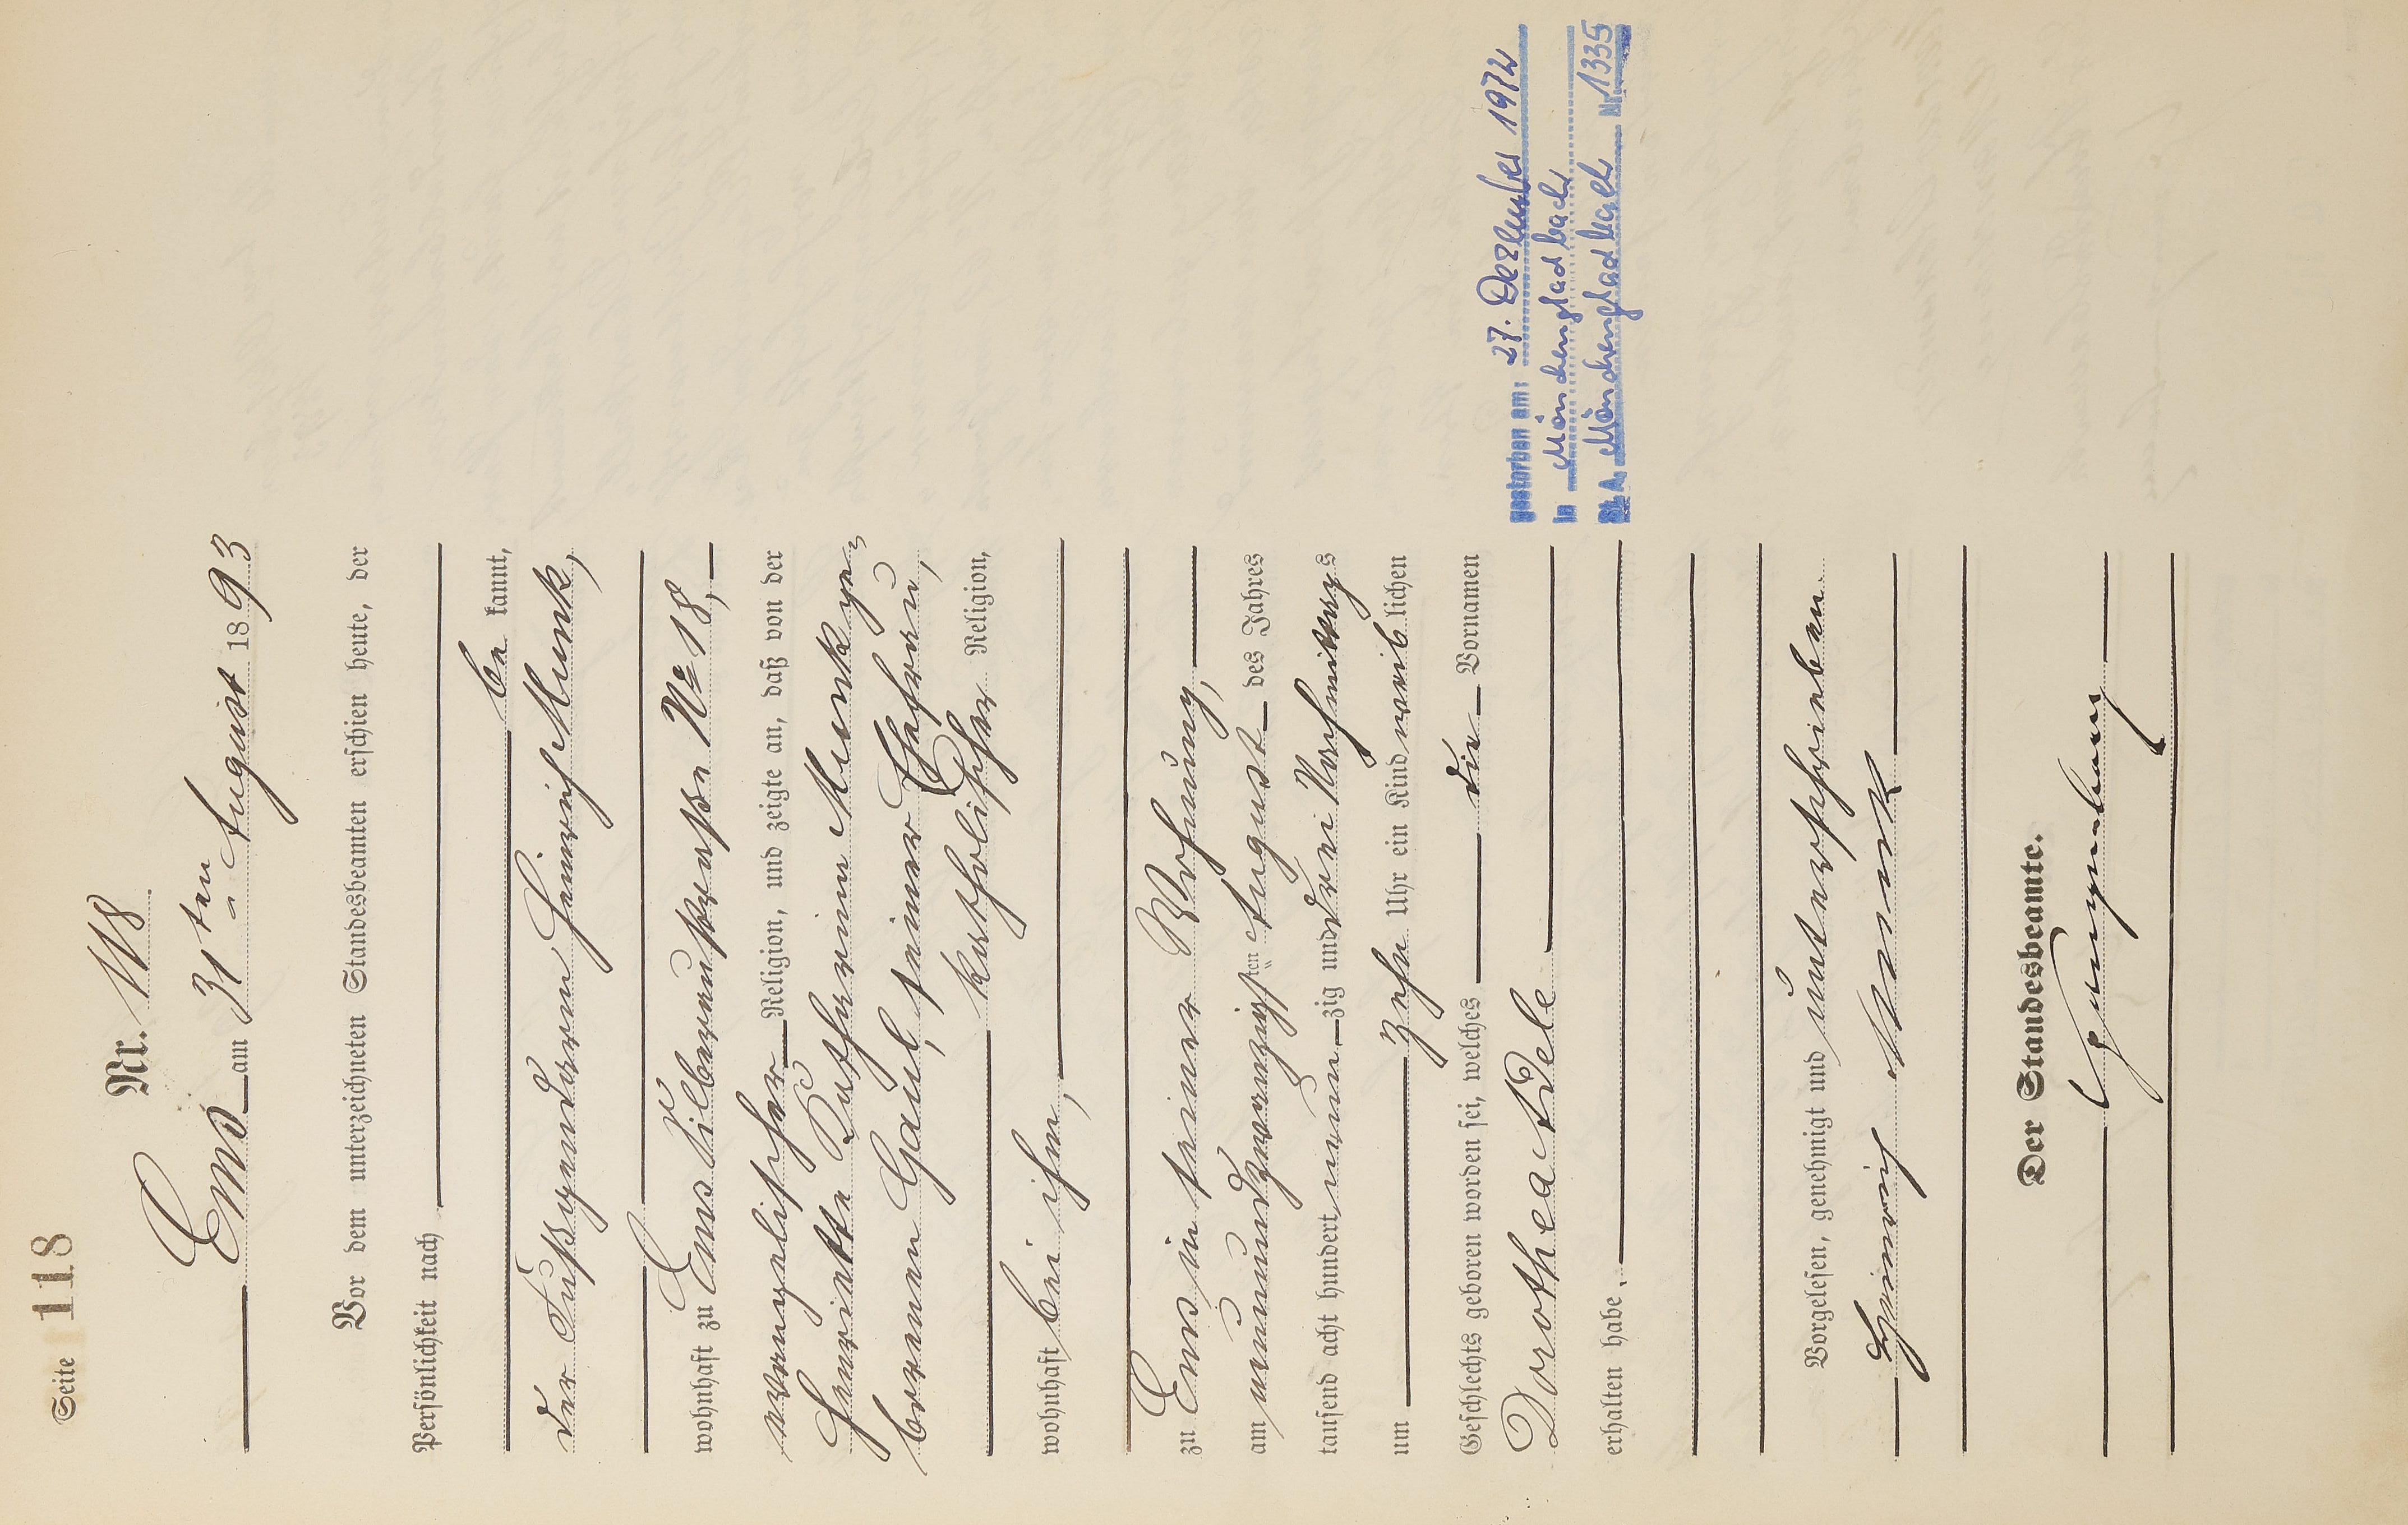 Seite 118
Nr. 118
Ems am 31ten August 1893
Vor dem unterzeichneten Standesbeamten erschien heute, der
Persönlichkeit nach
be kannt,
der Fußgendarm Heinrich Munk,
wohnhaft zu Ems Silberaustraße No 18,
evangelischer Religion, und zeigte an, daß von der
Henriette Katharina Munk ge-
borenen Gaul, seiner Ehefrau,
katholischer Religion,
wohnhaft bei ihm,
zu Ems in seiner Wohnung,
am neunundzwanzigsten August des Jahres
tausend acht hundert neun zig und drei Nachmittags
um zehn Uhr ein Kind weib lichen
Geschlechts geboren worden sei, welches die Vornamen
Dorothea Adele
erhalten habe.
Vorgelesen, genehmigt und unterschrieben.
Heinrich Munk
Der Standesbeamte.
gestorben am: 27. Dezember 1972
in Mönchengladbach
St. A. Mönchengladbach Nr. 1335